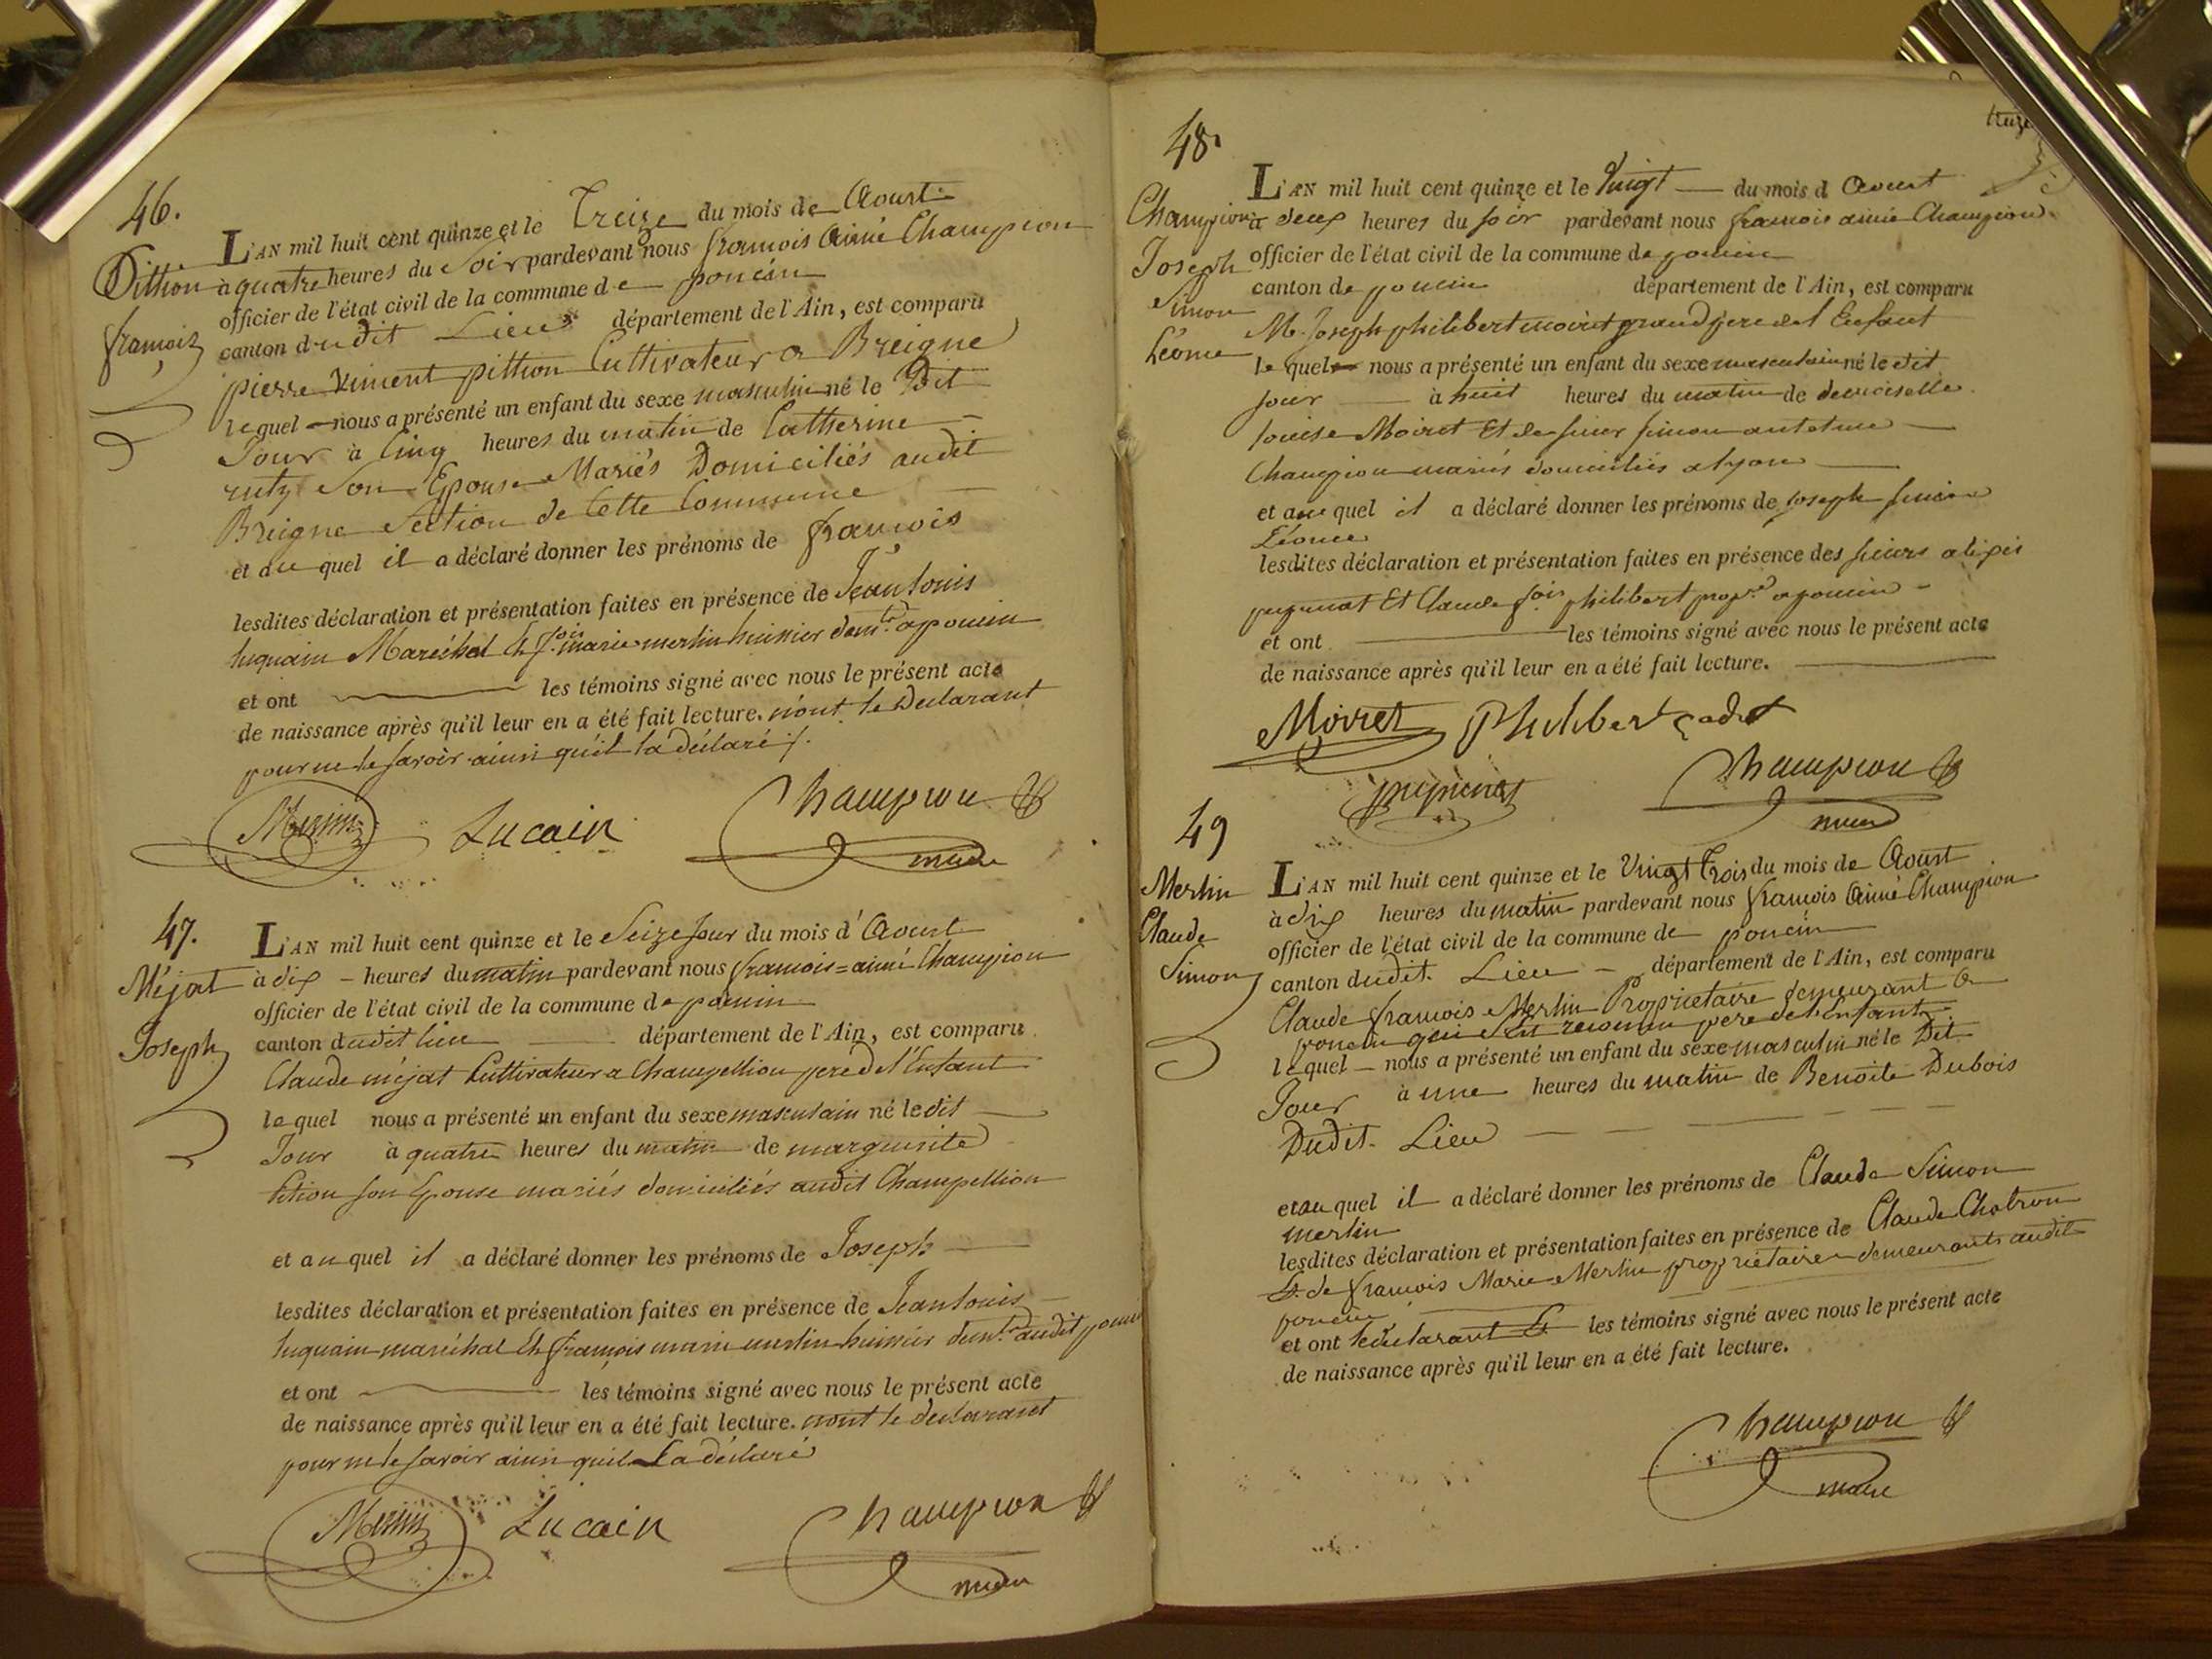 46.
Pittion
françois
L'AN mil huit cent quinze et le Treize du mois de Aoust
à quatre heures du Soir pardevant nous françois Aimé Champion
officier de l'état civil de la commune de poncin
canton dudit Lieu département de l'Ain, est comparu
pierre Vincent pittion Cultivateur a Breigne
lequel nous a présenté un enfant du sexe masculin né le Dit
Jour à Cinq heures du matin de Catherine
son Epouse Mariés Domiciliés audit
Breigne Section de Cette Commune
et au quel il a déclaré donner les prénoms de françois
lesdites déclaration et présentation faites en présence de Jean Louis
luquain Maréchal Et f.ois marie merlin huissier dem.ts a poncin
et ont les témoins signé avec nous le présent acte
de naissance après qu'il leur en a été fait lecture. non le Declarant
pour ne le savoir ainsi qu'il la déclaré ./.
Merlin Lucain Champion
maire
47.
Méjat
Joseph
L'AN mil huit cent quinze et le Seize Jour du mois d'Aoust
à dix heures du matin pardevant nous françois=aimé Champion
officier de l'état civil de la commune de poncin
canton dudit lieu département de l'Ain, est comparu
Claude méjat Cultivateur a Champellion pere de l'Enfant
lequel nous a présenté un enfant du sexe masculain né le dit
Jour à quatre heures du matin de marguerite
son Epouse mariés domiciliés audit Champellion
et au quel il a déclaré donner les prénoms de Joseph
lesdites déclaration et présentation faites en présence de Jean Louis
luquain maréchal Et françois marie merlin huissier dem.ts audit poncin
et ont les témoins signé avec nous le présent acte
de naissance après qu'il leur en a été fait lecture. non le declarant
pour ne le savoir ainsi quil La déclaré
Merlin Lucain Champion
maire
48.
Champion
Joseph
Simon
Léonce
L'AN mil huit cent quinze et le Vingt du mois d Aoust
à deux heures du soir pardevant nous francois aimé Champion
officier de l'état civil de la commune de poncin
canton de poncin département de l'Ain, est comparu
M. Joseph philibert moiret grand pere de l Enfant
lequel nous a présenté un enfant du sexe masculain né le dit
jour à huit heures du matin de demoiselle
louise Moiret Et de sieur simon antoine
Champion mariés domiciliés a lyon
et au quel il a déclaré donner les prénoms de joseph simon
Léonce
lesdites déclaration et présentation faites en présence des sieurs
Et Claude f.ois philibert prop.res a poncin
et ont les témoins signé avec nous le présent acte
de naissance après qu'il leur en a été fait lecture.
Moiret Philibert cadet
Champion
maire
49
Merlin
Claude
Simon
L'AN mil huit cent quinze et le Vingt Trois du mois de Aoust
à dix heures du matin pardevant nous françois Aimé Champion
officier de l'état civil de la commune de poncin
canton dudit Lieu département de l'Ain, est comparu
Claude françois Merlin Propriétaire demeurant a
poncin qui sest reconnu pere de l'enfant
lequel nous a présenté un enfant du sexe masculin né le Dit
Jour à une heures du matin de Benoite Dubois
Dudit Lieu
et au quel il a déclaré donner les prénoms de Claude Simon
merlin
lesdites déclaration et présentation faites en présence de Claude Chatron
Et de françois Marie Merlin propriétaires demeurants audit
poncin
et ont le déclarant Et les témoins signé avec nous le présent acte
de naissance après qu'il leur en a été fait lecture.
Champion
maire